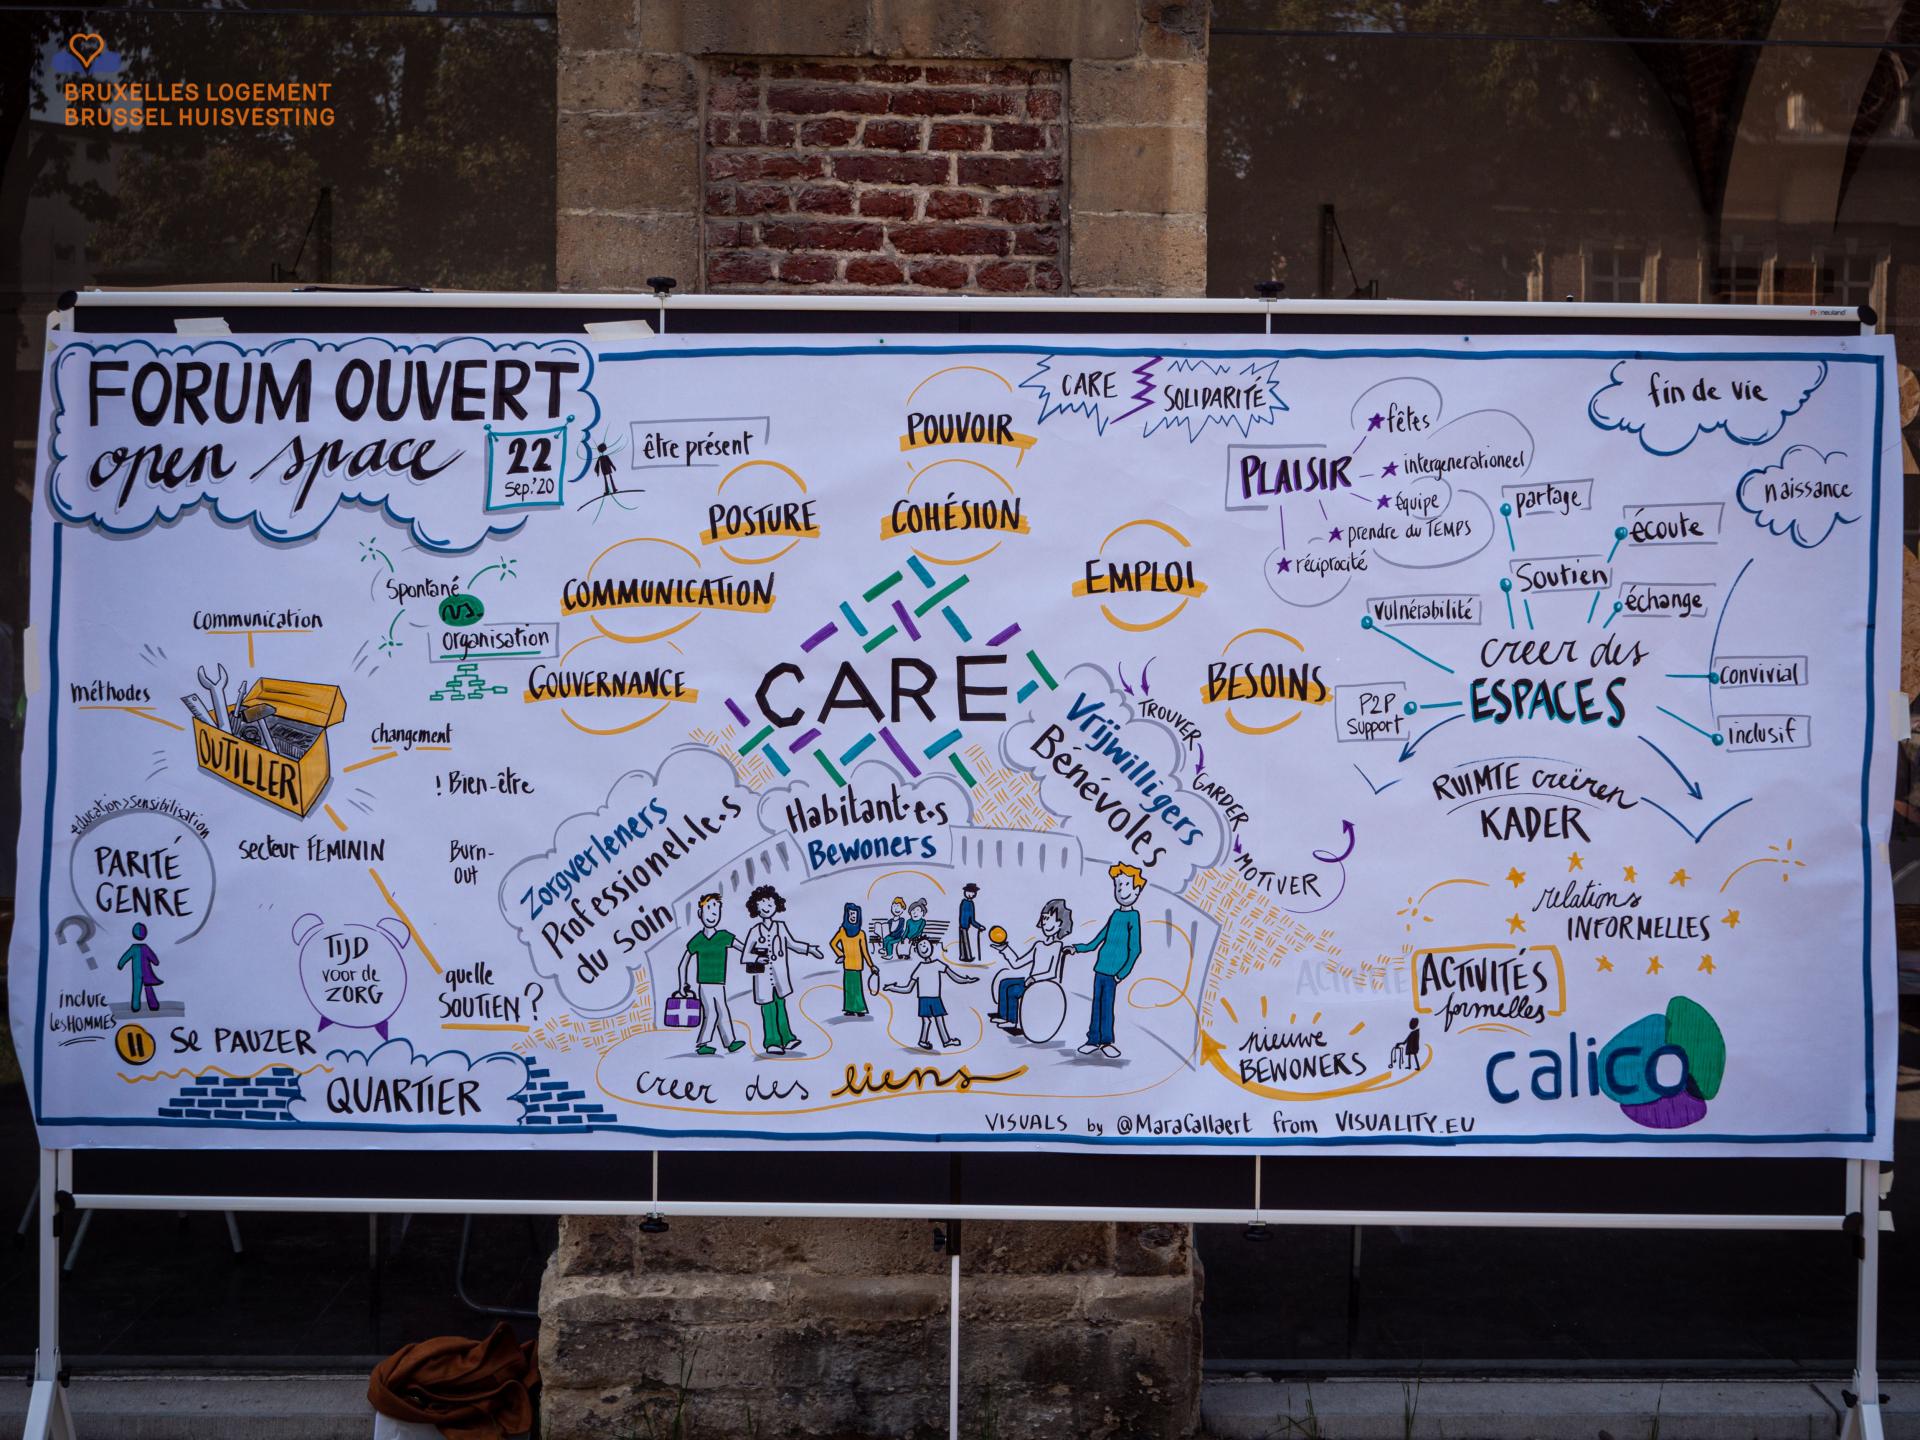 BRUXELLES LOGEMENT
BRUSSEL HUISVESTING
neuland
FORUM OUVERT
open space
22
Sep.'20
être présent
POUVOIR
COHÉSION
POSTURE
COMMUNICATION
GOUVERNANCE
EMPLOI
BESOINS
CARE
SOLIDARITÉ
PLAISIR
fêtes
intergenerationeel
équipe
prendre du TEMPS
réciprocité
fin de vie
naissance
partage
écoute
Soutien
échange
vulnérabilité
creer des
ESPACES
P2P
Support
convivial
inclusif
RUIMTE creëren
KADER
Spontané
vs.
organisation
Communication
méthodes
OUTILLER
changement
! Bien-être
secteur FEMININ
Burn-
out
quelle
SOUTIEN?
education > Sensibilisation
PARITÉ
GENRE
?
inclure
les HOMMES
TIJD
voor de
ZORG
Se PAUZER
QUARTIER
CARE
Zorgverleners
Professionel.le.s
du soin
Habitant.e.s
Bewoners
Vrijwilligers
Bénévoles
TROUVER
GARDER
MOTIVER
creer des liens
relations
INFORMELLES
ACTIVITÉS
formelles
nieuwe
BEWONERS
calico
VISUALS by @MaraCallaert from VISUALITY.EU